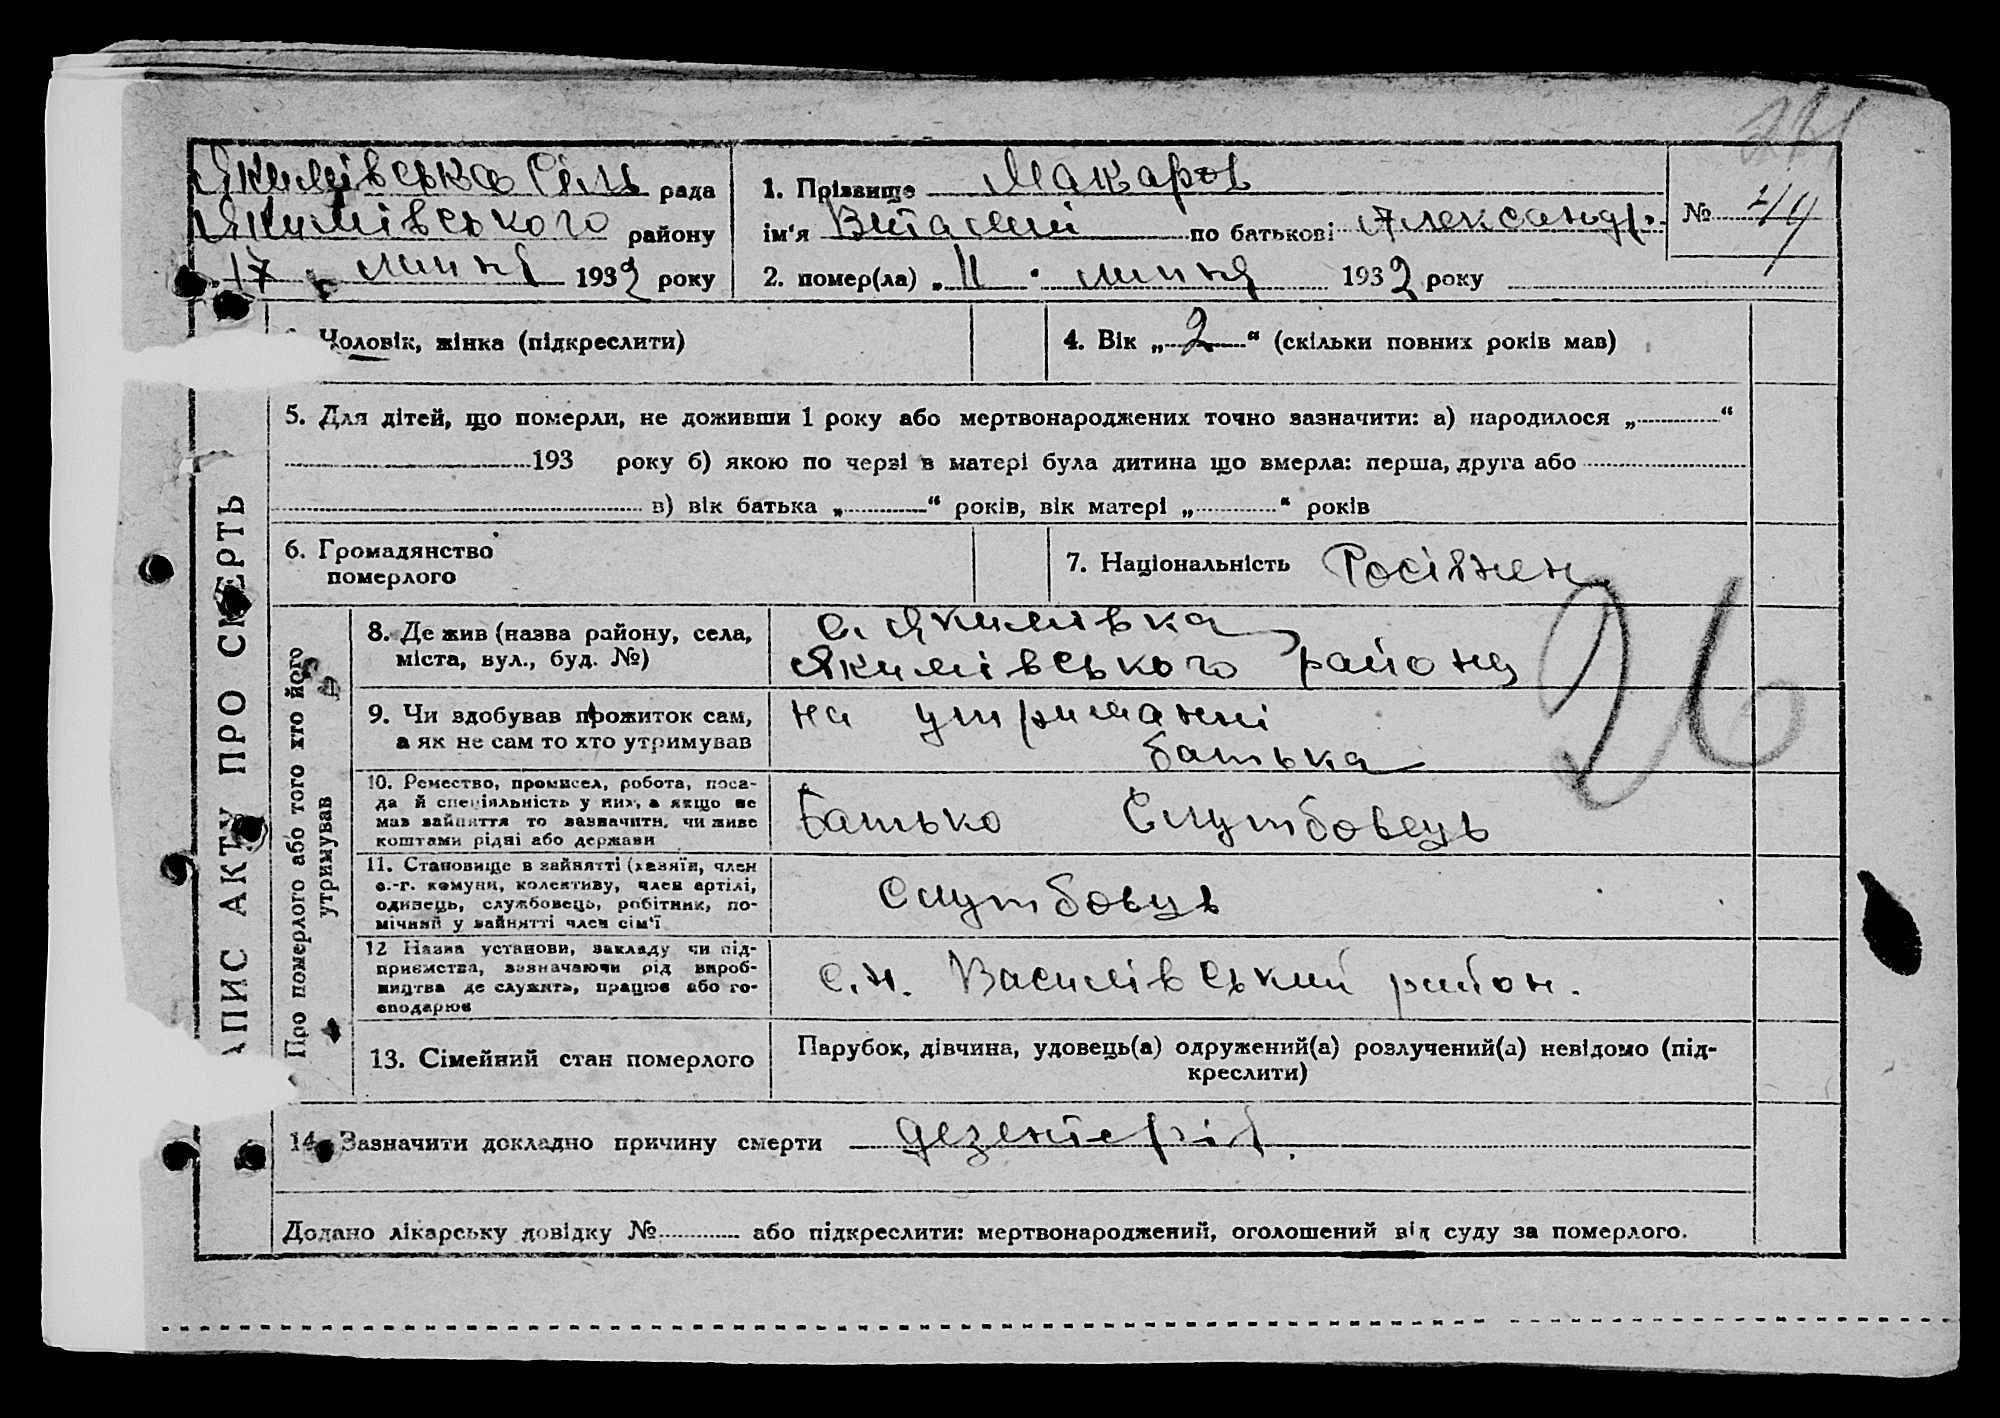 Якимівська Сіль рада
Якимівського району
17 липня 1932 року
1. Прізвище Макаров
ім'я Віталий по батькові Александр.
2. помер(ла) „ 11 " липня 1932 року
№
Чоловік, жінка (підкреслити)
4. Вік „ 2 “ (скільки повних років мав)
5. Для дітей, що померли, не доживши 1 року або мертвонароджених точно зазначити: а) народилося „ “
193 року б) якою по черзі в матері була дитина що вмерла: перша, друга або
в) вік батька „ “ років, вік матері „ “ років
6. Громадянство
померлого
7. Національність Росіянен
26
ЗАПИС АКТУ ПРО СМЕРТЬ
Про померлого або того хто його
утримував
8. Де жив (назва району, села,
міста, вул., буд. №)
с. Якимівка
Якимівського района
9. Чи здобував прожиток сам,
а як не сам то хто утримував
на утриманні
батька
10. Ремество, промисел, робота, поса-
да й спеціяльність у них, а якщо не
мав зайняття то зазначити, чи живе
коштами рідні або держави
Батько Службовець
11. Становище в зайнятті (хазяїн, член
с.-г. комуни, колективу, член артілі,
одинець, службовець, робітник, по-
мічний у зайнятті член сім'ї
Службовець
12 Назва установи, закладу чи під-
приємства, зазначаючи рід вироб-
ництва де служить, працює або го-
сподарює
с.н. Василівський район.
13. Сімейний стан померлого
Парубок, дівчина, удовець(а) одружений(а) розлучений(а) невідомо (під-
креслити)
14. Зазначити докладно причину смерти дезентерія.
Додано лікарську довідку № або підкреслити: мертвонароджений, оголошений від суду за померлого.